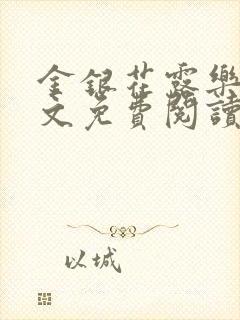 金銀花露樂
文免費閱讀
以城